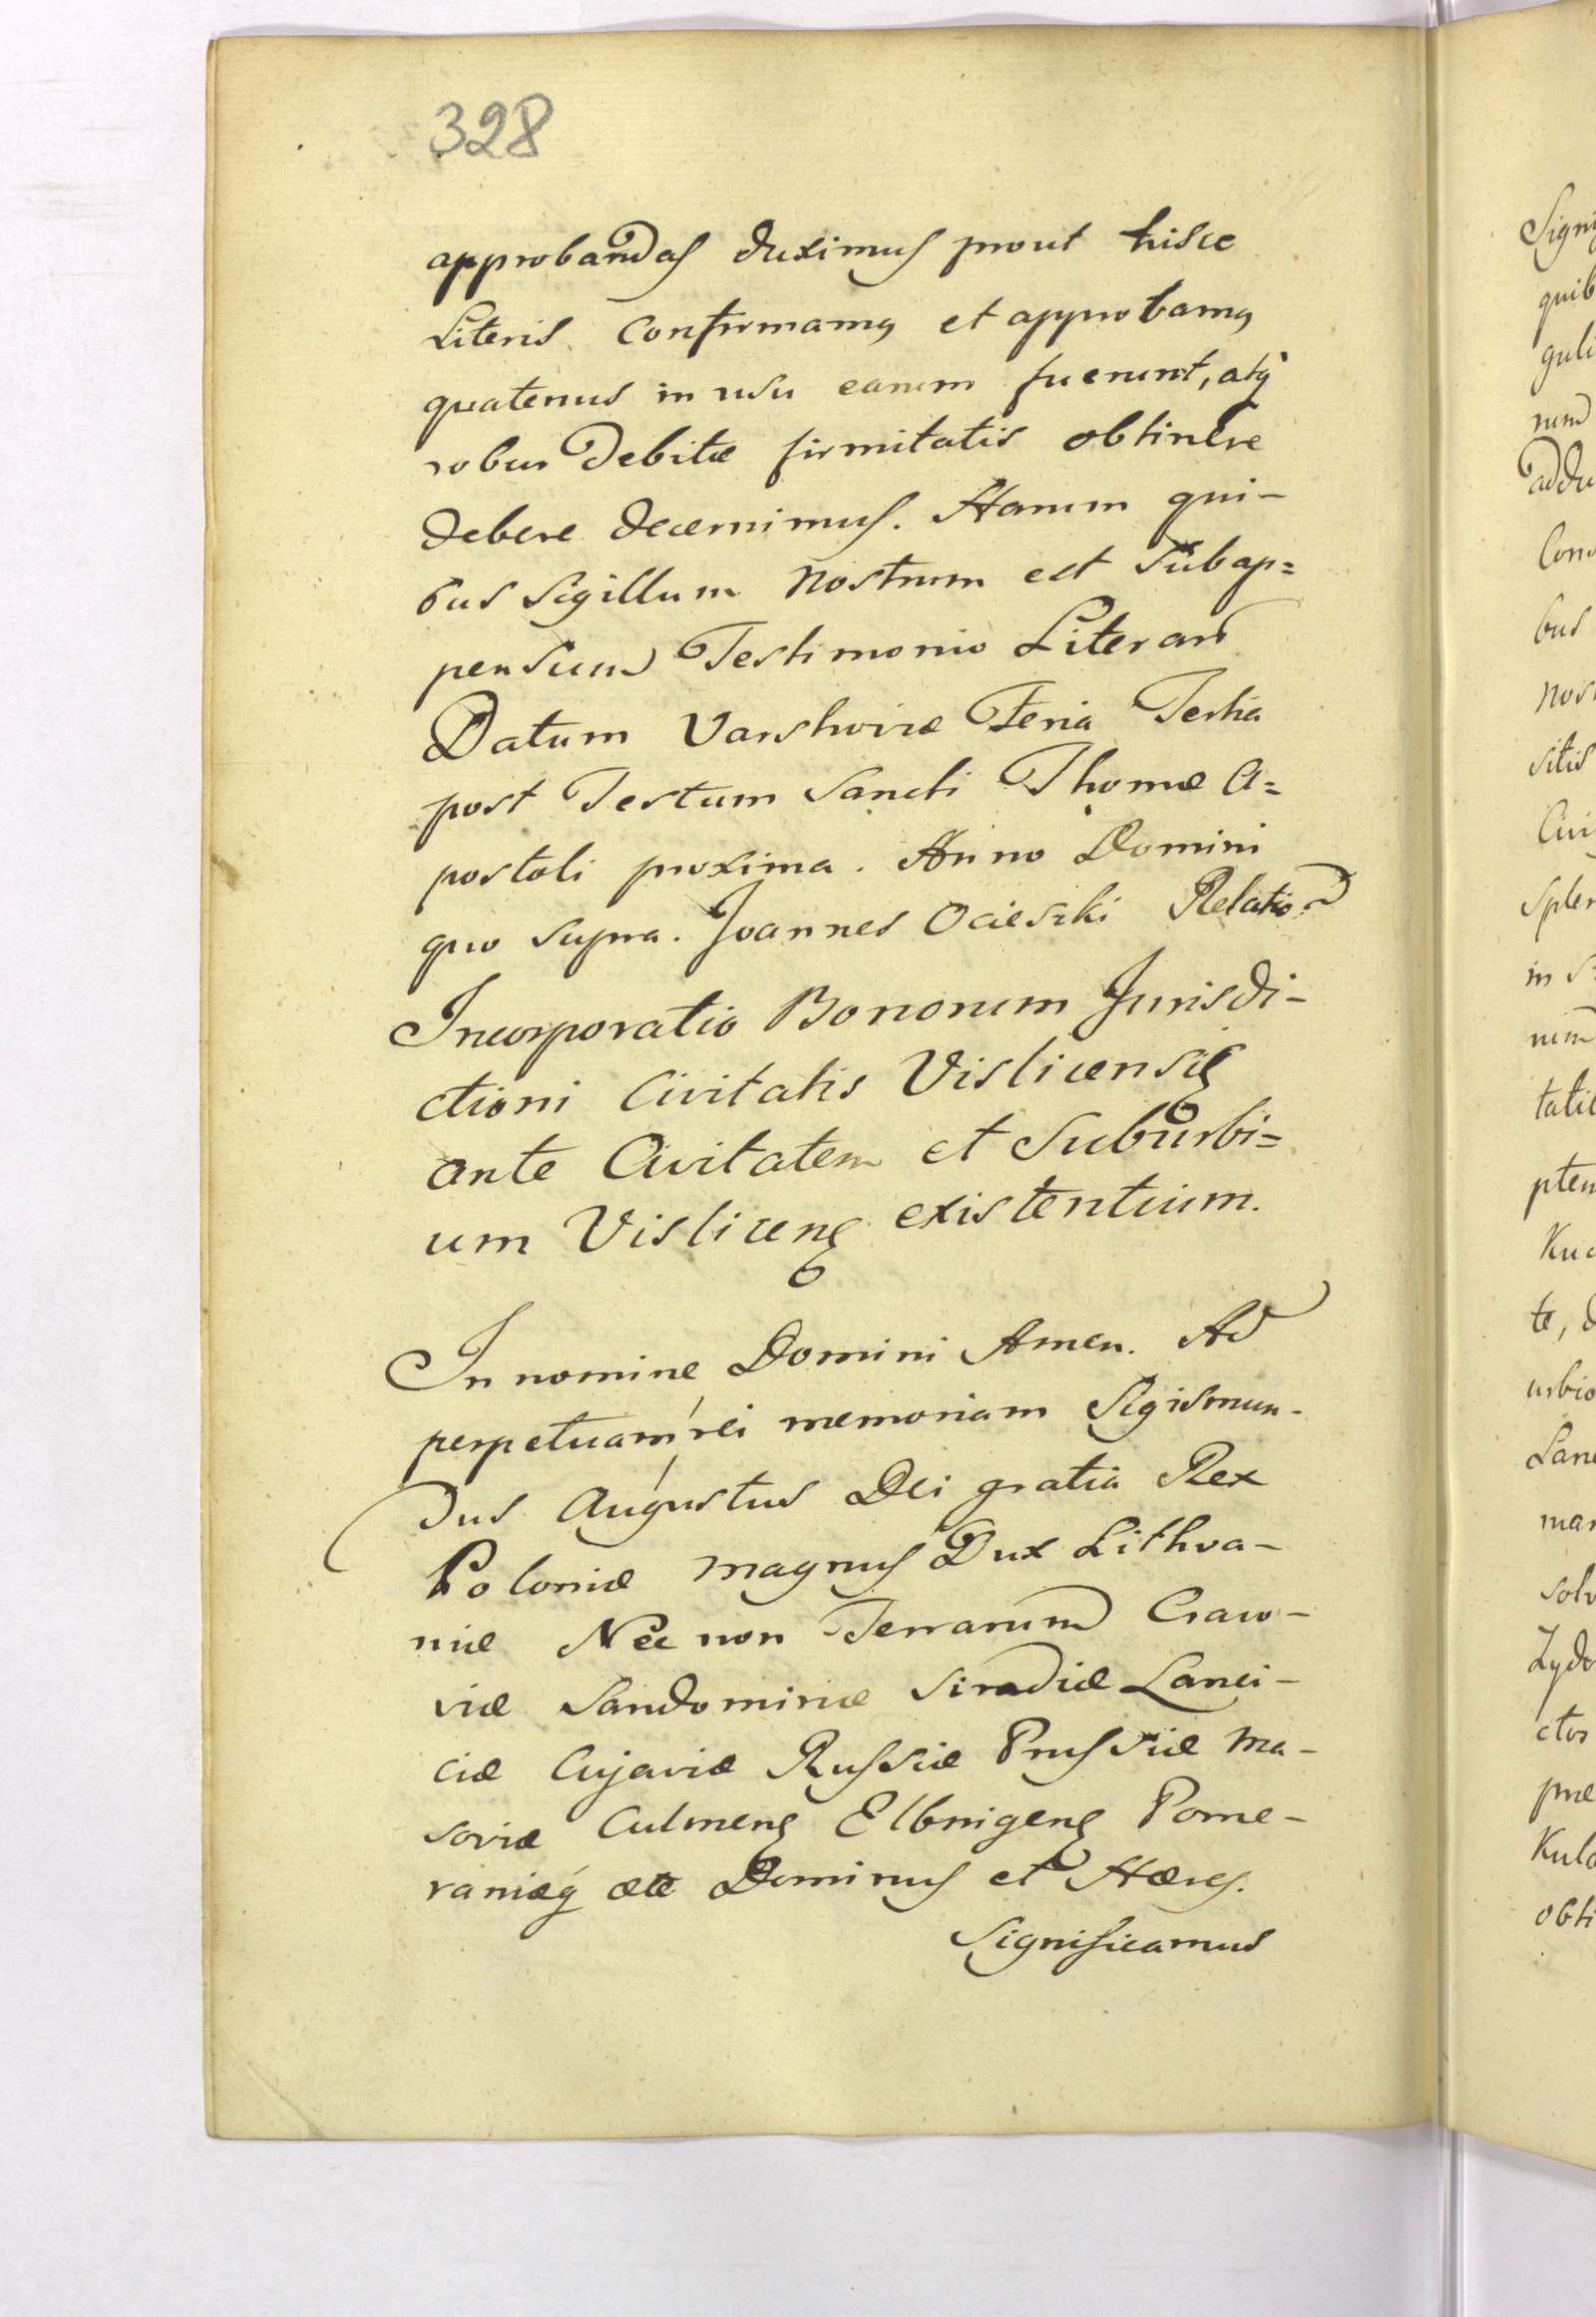 328
approbandas duximus prout hisce
Literis confirmamq et approbamq
quatenus in usu earum fuerunt, atq
robur Debitæ firmitatis obtinere
debere decernimus. Harum qui-
bus Sigillum nostrum est Subap=
pensum Testimonio Literarū
Datum Varshoviæ Feria Tertia
post Festum Sancti Thomæ A=
postoli proxima. Anno Domini
quo supra. Joannes Ocieszki Relatio
Incorporatio Bonorum Jurisdi-
ctioni Civitatis Vislicensis
ante Civitatem et Suburbi=
um Vislicens existentium.
In nomine Domini Amen. Ad
perpetuam rei memoriam Sigismun-
dus Augustus Dei gratia Rex
Poloniæ magnus Dux Lithva-
niæ Nec non Terrarum Craco-
viæ Sandomiriæ Siradiæ Lanci-
ciæ Cujaviæ Russiæ Prussiæ Ma-
soviæ Culmens Elbnigens Pome-
raniæq ætc Dominus et Hæres.
Significamus
Signi
quib
guli
rum
addu
Con
bus
nos
sitis
Civi
Splen
in S
num
tatis
pten
Kuc
te, d
urbio
Lan
man
solv
Zydo
ctor
præ
Kulo
obti